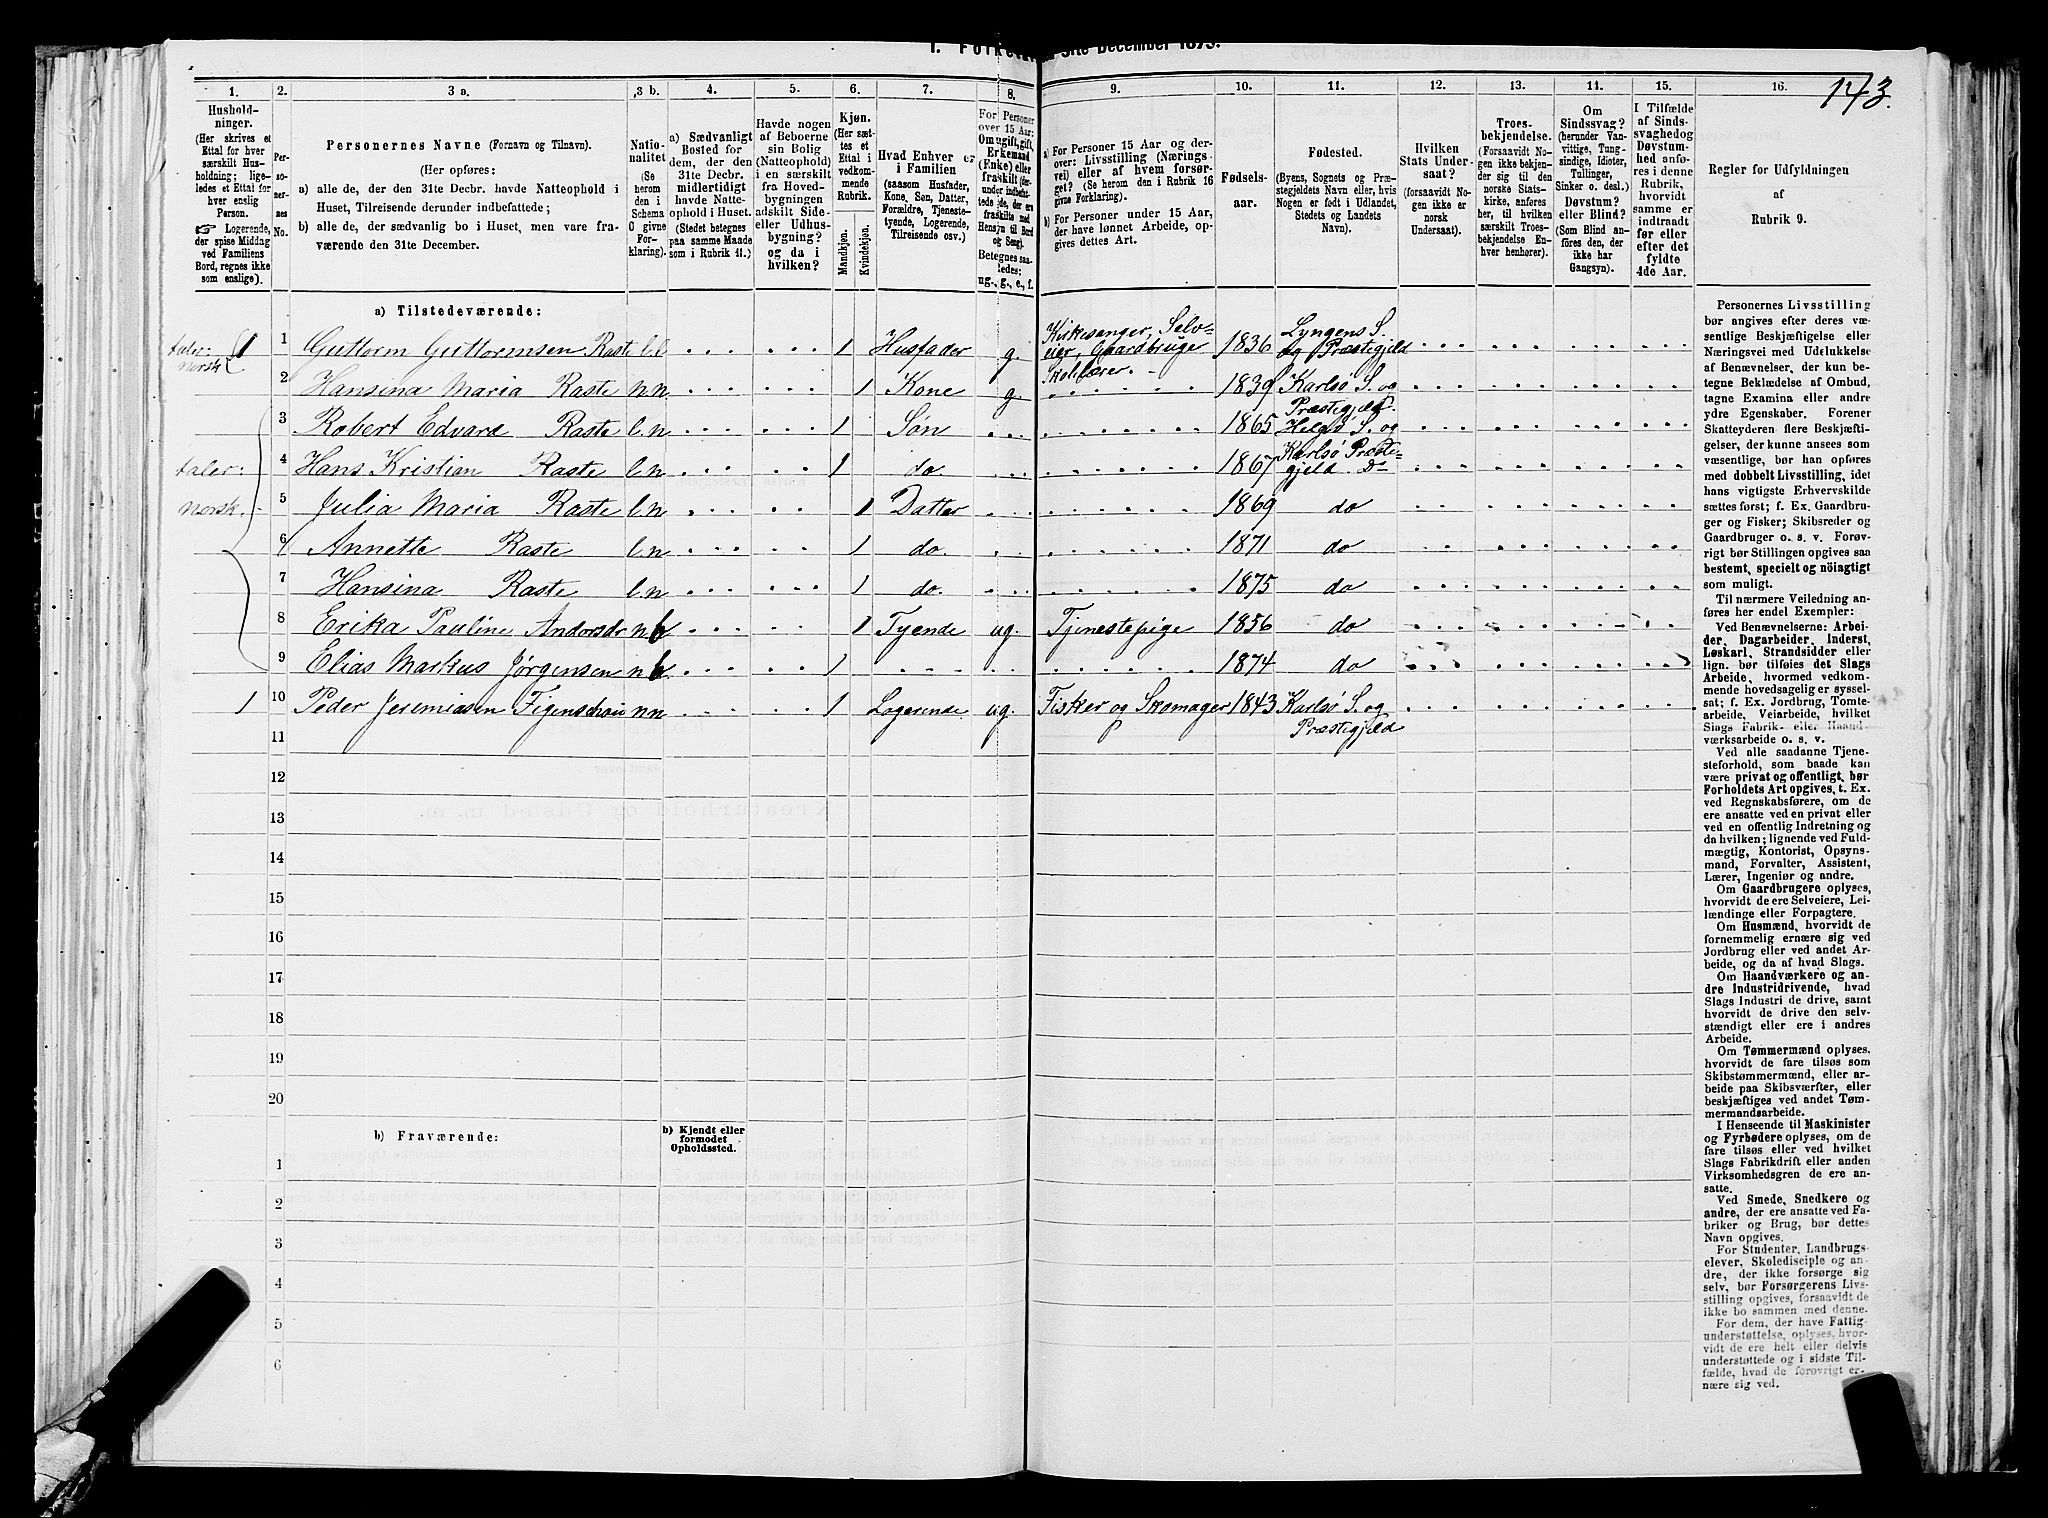 I. Folketæ 31te December 1875.
143.
1. 2. 3 a. 3 b. 4. 5. 6. 7. 8. 9. 10. 11. 12. 13. 14. 15. 16.
Hushold-
ninger.
(Her skrives et
Ettal for hver
særskilt Hus-
holdning; lige-
ledes et Ettal for
hver enslig
Person.
☞ Logerende,
der spise Middag
ved Familiens
Bord, regnes ikke
som enslige).
Per-
so-
ner-
nes
No.
Personernes Navne (Fornavn og Tilnavn).
(Her opføres:
a) alle de, der den 31te Decbr. havde Natteophold i
Huset, Tilreisende derunder indbefattede;
b) alle de, der sædvanlig bo i Huset, men vare fra-
værende den 31te December.
Natio-
nalitet
(Se
herom
den i
Schema
O givne
For-
klaring).
a) Sædvanligt
Bosted for
dem, der den
31te Decbr.
midlertidigt
havde Natte-
ophold i Huset.
(Stedet betegnes
paa samme Maade
som i Rubrik 11.)
Havde nogen
af Beboerne
sin Bolig
(Natteophold)
i en særskilt
fra Hoved-
bygningen
adskilt Side-
eller Udhus-
bygning?
og da i
hvilken?
Kjøn.
(Her sæt-
tes et
Ettal i
vedkom-
mende
Rubrik.
Mandkjøn.
Kvindekjøn.
Hvad Enhver er
i Familien
(saasom Husfader,
Kone, Søn, Datter,
Forældre, Tjeneste-
tyende, Logerende,
Tilreisende osv.)
For Personer
over 15 Aar:
Om ugift, gift,
Enkemand
(Enke) eller
fraskilt (der-
under indbefat-
tede de, der ere
fraskilte med
Hensyn til Bord
og Seng).
Betegnes saa-
ledes:
ug., g., e., f.
a) For Personer 15 Aar og der-
over: Livsstilling (Nærings-
vei) eller af hvem forsør-
get? (Se herom den i Rubrik 16
givne Forklaring).
b) For Personer under 15 Aar,
der have lønnet Arbeide, op-
gives dettes Art.
Fødsels-
aar.
Fødested.
(Byens, Sognets og Præ-
stegjeldets Navn eller, hvis
Nogen er født i Udlandet,
Stedets og Landets
Navn).
Hvilken
Stats Under-
saat?
(forsaavidt No-
gen ikke er
norsk
Undersaat).
Troes-
bekjendelse.
(Forsaavidt No-
gen ikke bekjen-
der sig til den
norske Stats-
kirke, anføres
her, til hvilken
særskilt Troes-
bekjendelse En-
hver henhører).
Om
Sindssvag?
(herunder Van-
vittige, Tung-
sindige, Idioter,
Tullinger,
Sinker o. desl.)
Døvstum?
eller Blind?
(Som Blind an-
føres den, der
ikke har
Gangsyn).
I Tilfælde
af Sinds-
svaghed og
Døvstum-
hed anfø-
res i denne
Rubrik,
hvorvidt
samme er
indtraadt
før eller
efter det
fyldte
4de Aar.
Regler for Udfyldningen
af
Rubrik 9.
a) Tilstedeværende:
taler: norsk 1 1 Guttorm Guttormsen Raste l.l 1 Husfader g. Kirkesanger, Selv-
eier, Gaardbruge
Skolelærer. 1836 Lyngens S.
og Præstegjeld
2 Hansina Maria Raste n.n. 1 Kone g. 1839 Karlsø S. og
Præstegjeld.
3 Robert Edvard Raste l.n 1 Søn 1865 Helgø S. og
Karlsø Præste-
gjeld.
taler: norsk. 4 Hans Kristian Raste l.n 1 do. 1867 Do
5 Julia Maria Raste l.n 1 Datter 1869 do
6 Annette Raste l.n 1 do. 1871 do
7 Hansina Raste l.n 1 do. 1875 do
8 Erika Pauline Andorsdr n 1 Tyende ug. Tjenestepige 1856 do
9 Elias Markus Jørgensen n 1 1874 do
1 10 Peder Jeremiasen Figenschau n.n 1 Logerende ug. Fisker og Skomager 1843 Karlsø S. og
Præstegjeld
11
12
13
14
15
16
17
18
19
20
b) Fraværende:
b) Kjendt eller
formodet
Opholdssted.
1
2
3
4
5
6
Personernes Livsstilling
bør angives efter deres væ-
sentlige Beskjæftigelse eller
Næringsvei med Udelukkelse
af Benævnelser, der kun be-
tegne Beklædelse af Ombud,
tagne Examina eller andre
ydre Egenskaber. Forener
Skatteyderen flere Beskjæfti-
gelser, der kunne ansees som
væsentlige, bør han opføres
med dobbelt Livsstilling, idet
hans vigtigste Erhvervskilde
sættes først; f. Ex. Gaardbru-
ger og Fisker; Skibsreder og
Gaardbruger o. s. v. Forøv-
rigt bør Stillingen opgives saa
bestemt, specielt og nöiagtigt
som muligt.
Til nærmere Veiledning an-
føres her endel Exempler:
Ved Benævnelserne: Arbei-
der, Dagarbeider, Inderst,
Løskarl, Strandsidder eller
lign. bør tilføies det Slags
Arbeide, hvormed vedkom-
mende hovedsagelig er syssel-
sat; f. Ex. Jordbrug, Tomte-
arbeide, Veiarbeide, hvilket
Slags Fabrik- eller Haand-
værksarbeide o. s. v.
Ved alle saadanne Tjene-
steforhold, som baade kan
være privat og offentligt, bør
Forholdets Art opgives, t. Ex.
ved Regnskabsførere, om de
ere ansatte ved en privat eller
ved en offentlig Indretning og
da hvilken; lignende ved Fuld-
mægtig, Kontorist, Opsyns-
mand, Forvalter, Assistent,
Lærer, Ingeniør og andre.
Om Gaardbrugere oplyses,
hvorvidt de ere Selveiere, Lei-
lændinge eller Forpagtere.
Om Husmænd, hvorvidt de
fornemmelig ernære sig ved
Jordbrug eller ved andet Ar-
beide, og da af hvad Slags.
Om Haandværkere og an-
dre Industridrivende, hvad
Slags Industri de drive, samt
hvorvidt de drive den selv-
stændigt eller ere i andres
Arbeide.
Om Tømmermænd oplyses,
hvorvidt de fare tilsøs som
Skibstømmermænd, eller ar-
beide paa Skibsværfter, eller
beskjæftiges ved andet Tøm-
mermandsarbeide.
I Henseende til Maskinister
og Fyrbødere oplyses, om de
fare tilsøs eller ved hvilket
Slags Fabrikdrift eller anden
Virksomhedsgren de ere an-
satte.
Ved Smede, Snedkere og
andre, der ere ansatte ved Fa-
briker og Brug, bør dettes
Navn opgives.
For Studenter, Landbrugs-
elever, Skoledisciple og an-
dre, der ikke forsørge sig
selv, bør Forsørgerens Livs-
stilling opgives, forsaavidt de
ikke bo sammen med denne.
For dem, der have Fattig-
understøttelse, oplyses, hvor-
vidt de ere helt eller delvis
understøttede og i sidste Til-
fælde, hvad de forøvrigt er-
nære sig ved.